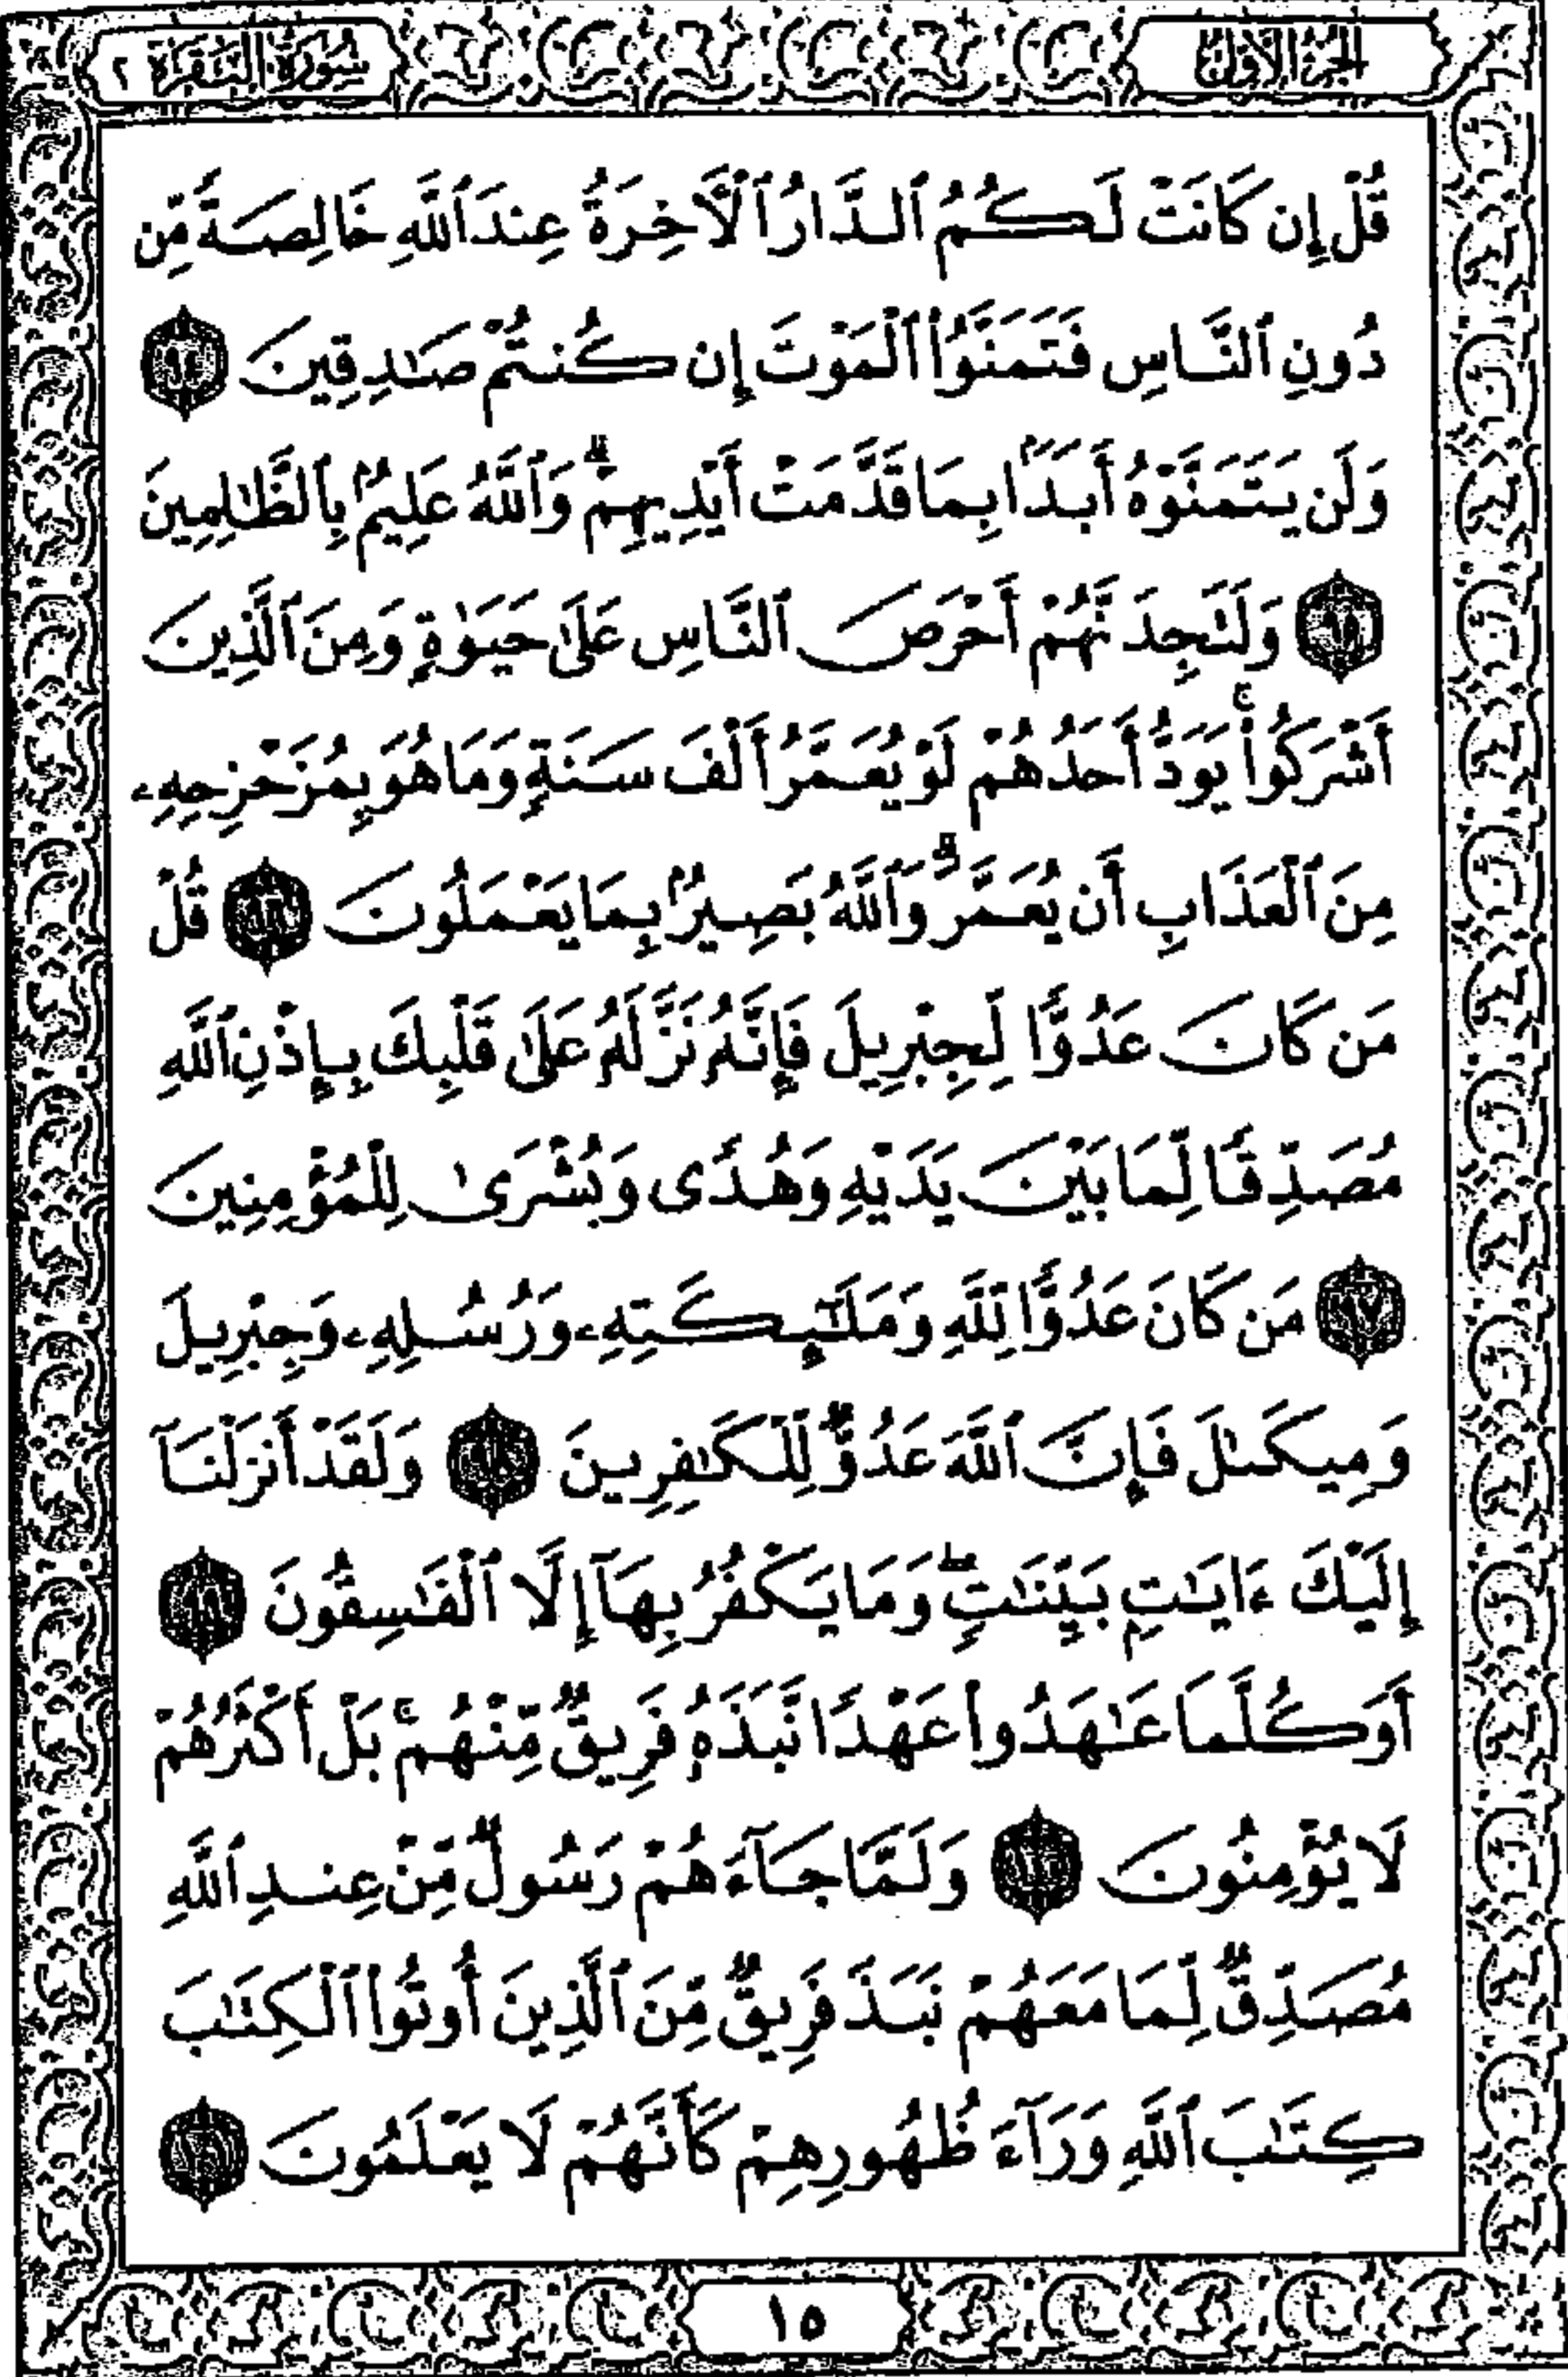 الجزء الأول
سورة البقرة ٢
قُلْ إِن كَانَتْ لَكُمُ ٱلدَّارُ ٱلْأَخِرَةُ عِندَ ٱللَّهِ خَالِصَةً مِّن
دُونِ ٱلنَّاسِ فَتَمَنَّوُا۟ ٱلْمَوْتَ إِن كُنتُمْ صَٰدِقِينَ ٩٤
وَلَن يَتَمَنَّوْهُ أَبَدًۢا بِمَا قَدَّمَتْ أَيْدِيهِمْ ۗ وَٱللَّهُ عَلِيمٌۢ بِٱلظَّٰلِمِينَ
٩٥ وَلَتَجِدَنَّهُمْ أَحْرَصَ ٱلنَّاسِ عَلَىٰ حَيَوٰةٍ وَمِنَ ٱلَّذِينَ
أَشْرَكُوا۟ ۚ يَوَدُّ أَحَدُهُمْ لَوْ يُعَمَّرُ أَلْفَ سَنَةٍ وَمَا هُوَ بِمُزَحْزِحِهِۦ
مِنَ ٱلْعَذَابِ أَن يُعَمَّرَ ۗ وَٱللَّهُ بَصِيرٌۢ بِمَا يَعْمَلُونَ ٩٦ قُلْ
مَن كَانَ عَدُوًّا لِّجِبْرِيلَ فَإِنَّهُۥ نَزَّلَهُۥ عَلَىٰ قَلْبِكَ بِإِذْنِ ٱللَّهِ
مُصَدِّقًا لِّمَا بَيْنَ يَدَيْهِ وَهُدًى وَبُشْرَىٰ لِلْمُؤْمِنِينَ
٩٧ مَن كَانَ عَدُوًّا لِّلَّهِ وَمَلَٰٓئِكَتِهِۦ وَرُسُلِهِۦ وَجِبْرِيلَ
وَمِيكَىٰلَ فَإِنَّ ٱللَّهَ عَدُوٌّ لِّلْكَٰفِرِينَ ٩٨ وَلَقَدْ أَنزَلْنَآ
إِلَيْكَ ءَايَٰتٍۭ بَيِّنَٰتٍ ۖ وَمَا يَكْفُرُ بِهَآ إِلَّا ٱلْفَٰسِقُونَ ٩٩
أَوَكُلَّمَا عَٰهَدُوا۟ عَهْدًا نَّبَذَهُۥ فَرِيقٌ مِّنْهُم ۚ بَلْ أَكْثَرُهُمْ
لَا يُؤْمِنُونَ ١٠٠ وَلَمَّا جَآءَهُمْ رَسُولٌ مِّنْ عِندِ ٱللَّهِ
مُصَدِّقٌ لِّمَا مَعَهُمْ نَبَذَ فَرِيقٌ مِّنَ ٱلَّذِينَ أُوتُوا۟ ٱلْكِتَٰبَ
كِتَٰبَ ٱللَّهِ وَرَآءَ ظُهُورِهِمْ كَأَنَّهُمْ لَا يَعْلَمُونَ ١٠١
١٥